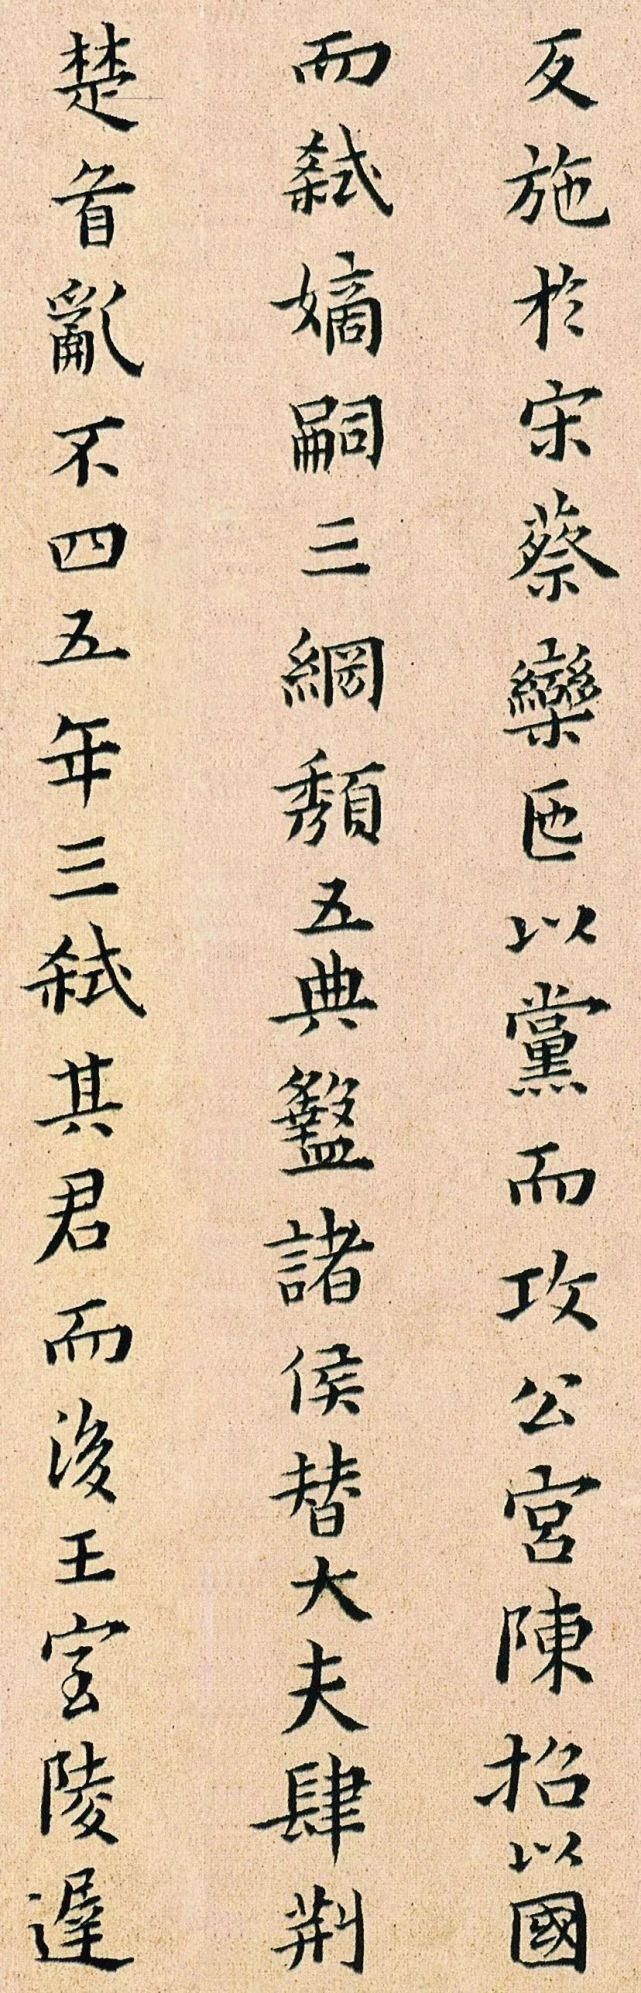 反施於宋蔡欒匜以黨而攻公宮陳招以國
而弒嫡嗣三綱頹五典盭諸侯替大夫肆荆
楚首亂不四五年三弒其君而後王室陵遲